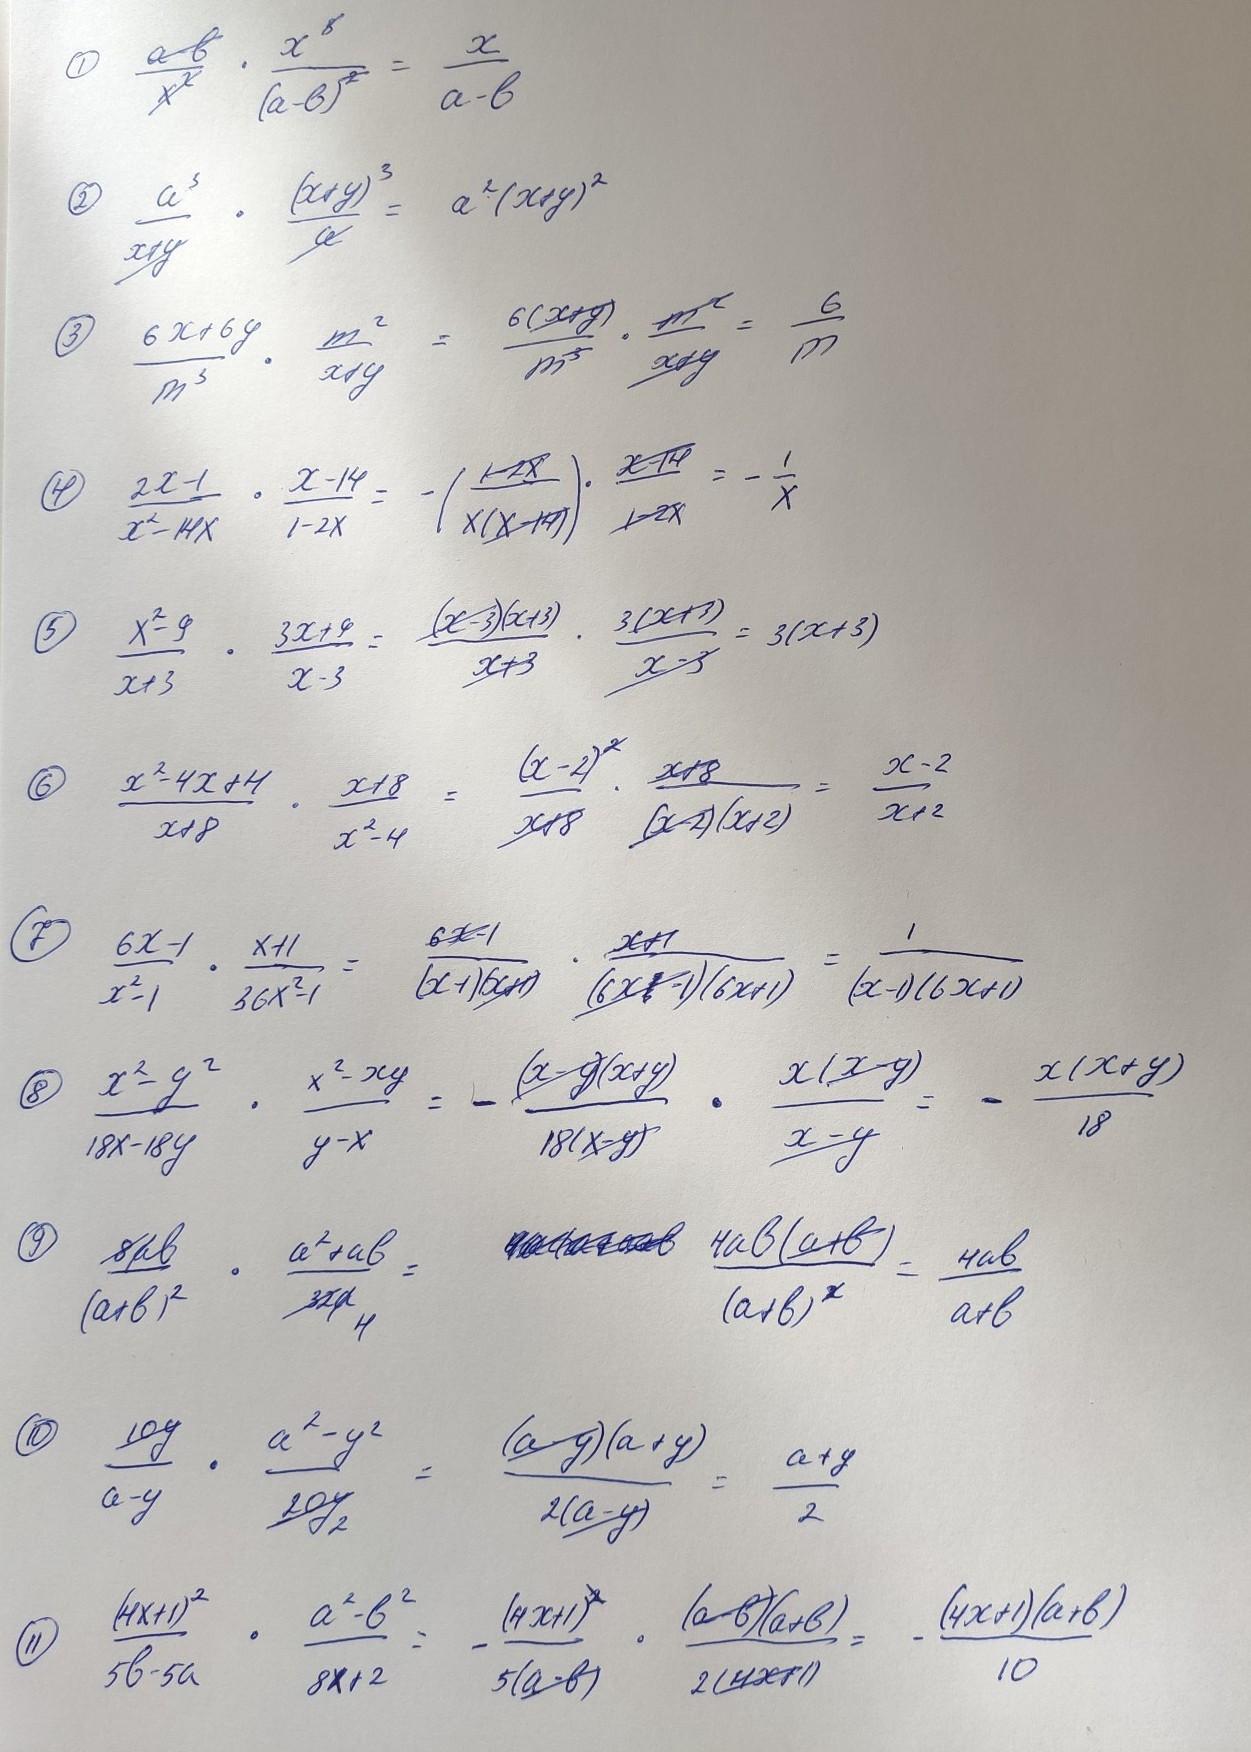 ① (a-b)/x² · x³/(a-b)² = x/(a-b)
② a³/(x+y) · (x+y)³/a = a²(x+y)²
③ (6x+6y)/m³ · m²/(x+y) = 6(x+y)/m³ · m²/(x+y) = 6/m
④ (2x-1)/(x²-14x) · (x-14)/(1-2x) = -((1-2x)/(x(x-14))) · (x-14)/(1-2x) = -1/x
⑤ (x²-9)/(x+3) · (3x+9)/(x-3) = (x-3)(x+3)/(x+3) · 3(x+3)/(x-3) = 3(x+3)
⑥ (x²-4x+4)/(x+8) · (x+8)/(x²-4) = (x-2)²/(x+8) · (x+8)/((x-2)(x+2)) = (x-2)/(x+2)
⑦ (6x-1)/(x²-1) · (x+1)/(36x²-1) = (6x-1)/((x-1)(x+1)) · (x+1)/((6x-1)(6x+1)) = 1/((x-1)(6x+1))
⑧ (x²-y²)/(18x-18y) · (x²-xy)/(y-x) = -(x-y)(x+y)/(18(x-y)) · x(x-y)/(x-y) = -x(x+y)/18
⑨ 8ab/(a+b)² · (a²+ab)/ 4 = 4ab(a+b)/(a+b)² = 4ab/(a+b)
⑩ 10y/(a-y) · (a²-y²)/20y 2 = (a-y)(a+y)/(2(a-y)) = (a+y)/2
⑪ (4x+1)²/(5b-5a) · (a²-b²)/(8x+2) = -(4x+1)²/(5(a-b)) · (a-b)(a+b)/(2(4x+1)) = -(4x+1)(a+b)/10